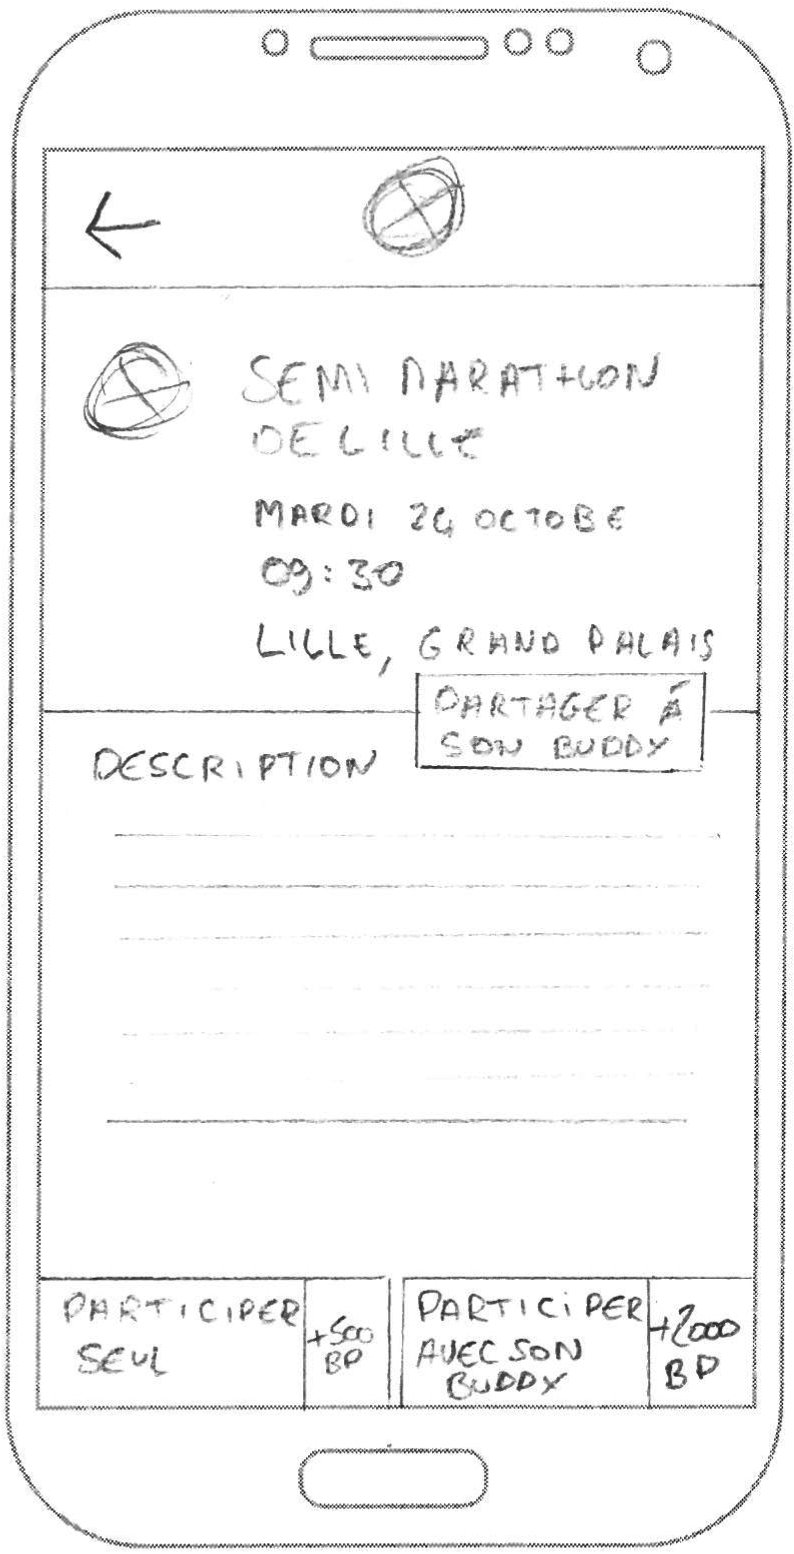 SEMI MARATHON
DE LILLE
MARDI 24 OCTOBE
09:30
LILLE, GRAND PALAIS
PARTAGER À
SON BUDDY
DESCRIPTION
PARTICIPER
SEUL
+500
BP
PARTICIPER
AVEC SON
BUDDY
+2000
BP